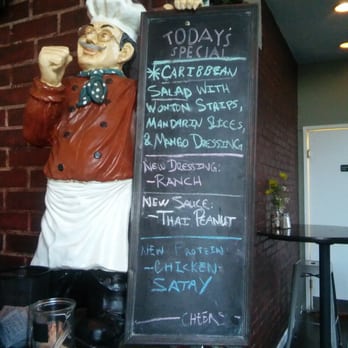 TODAY'S
SPECIAL
*CARIBBEAN
SALAD WITH
WONTON STRIPS,
MANDARIN SLICES,
& MANGO DRESSING
NEW DRESSING:
-RANCH
NEW SAUCE:
-THAI PEANUT
NEW PROTEIN
-CHICKEN-
SATAY
CHEERS